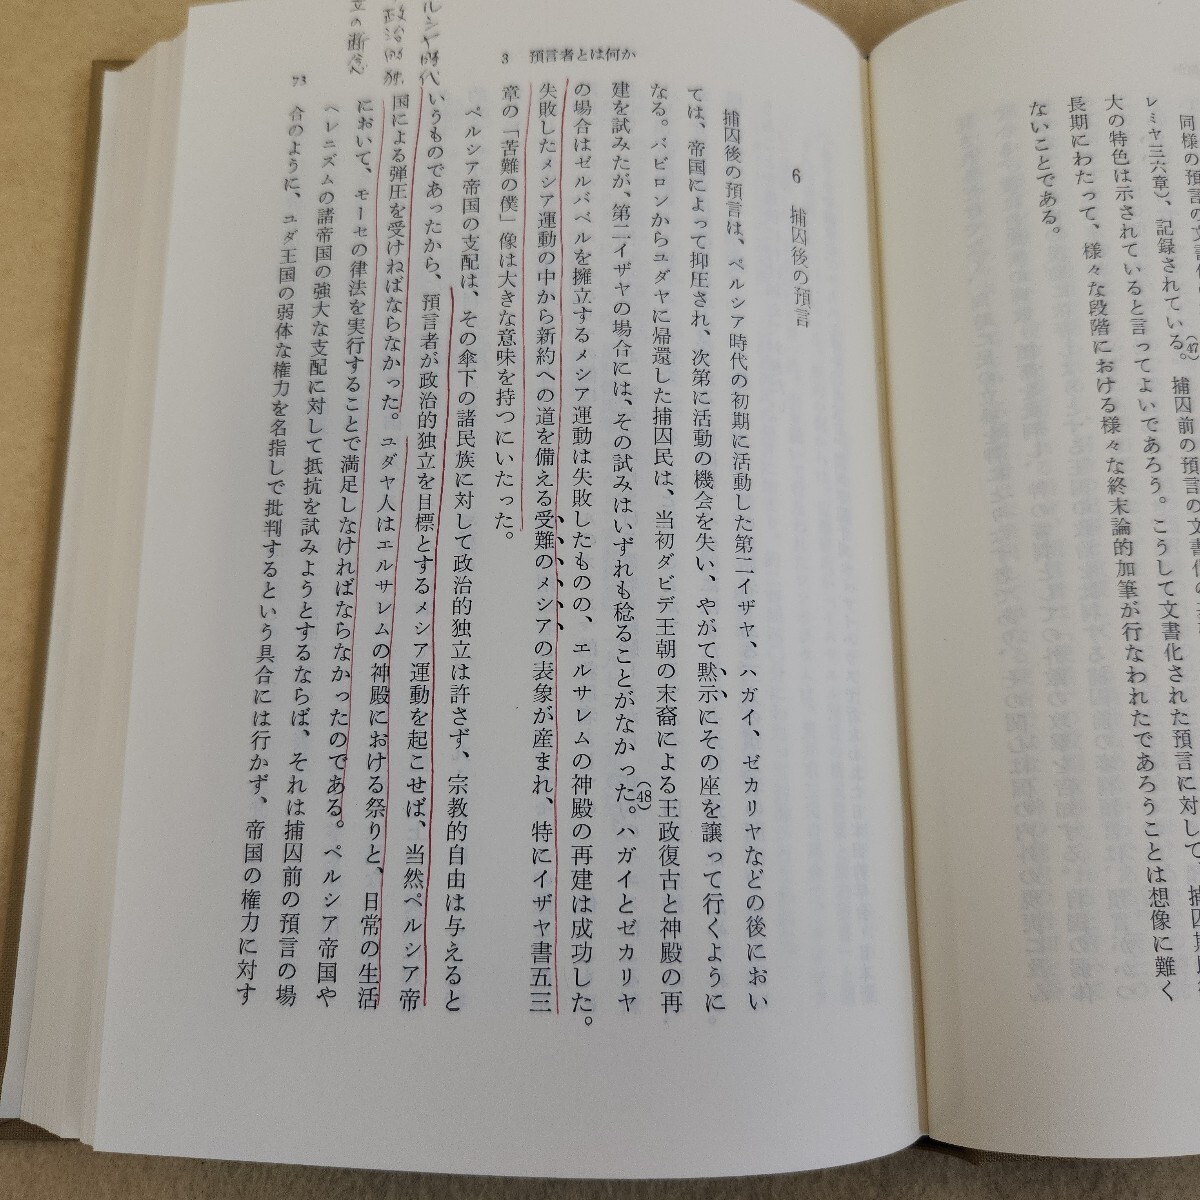 同様の預言の文書化
レミヤ三六章)、記録されている。(47) 捕囚前の預言の文書化の
大の特色は示されていると言ってよいであろう。こうして文書化された預言に対して、捕囚期
長期にわたって、様々な段階における様々な終末論的加筆が行なわれたであろうことは想像に難く
ないことである。
3 預言者とは何か
6 捕囚後の預言
捕囚後の預言は、ペルシア時代の初期に活動した第二イザヤ、ハガイ、ゼカリヤなどの後におい
ては、帝国によって抑圧され、次第に活動の機会を失い、やがて黙示にその座を譲って行くように
なる。バビロンからユダヤに帰還した捕囚民は、当初ダビデ王朝の末裔による王政復古と神殿の再
建を試みたが、第二イザヤの場合には、その試みはいずれも稔ることがなかった。(48)ハガイとゼカリヤ
の場合はゼルバベルを擁立するメシア運動は失敗したものの、エルサレムの神殿の再建は成功した。
失敗したメシア運動の中から新約への道を備える受難のメシアの表象が産まれ、特にイザヤ書五三
章の「苦難の僕」像は大きな意味を持つにいたった。
ペルシア帝国の支配は、その傘下の諸民族に対して政治的独立は許さず、宗教的自由は与えると
いうものであったから、預言者が政治的独立を目標とするメシア運動を起こせば、当然ペルシア帝
国による弾圧を受けねばならなかった。ユダヤ人はエルサレムの神殿における祭りと、日常の生活
において、モーセの律法を実行することで満足しなければならなかったのである。ペルシア帝国や
ヘレニズムの諸帝国の強大な支配に対して抵抗を試みようとするならば、それは捕囚前の預言の場
合のように、ユダ王国の弱体な権力を名指しで批判するという具合には行かず、帝国の権力に対す
73
ルシヤ時代
政治的独
立の断念